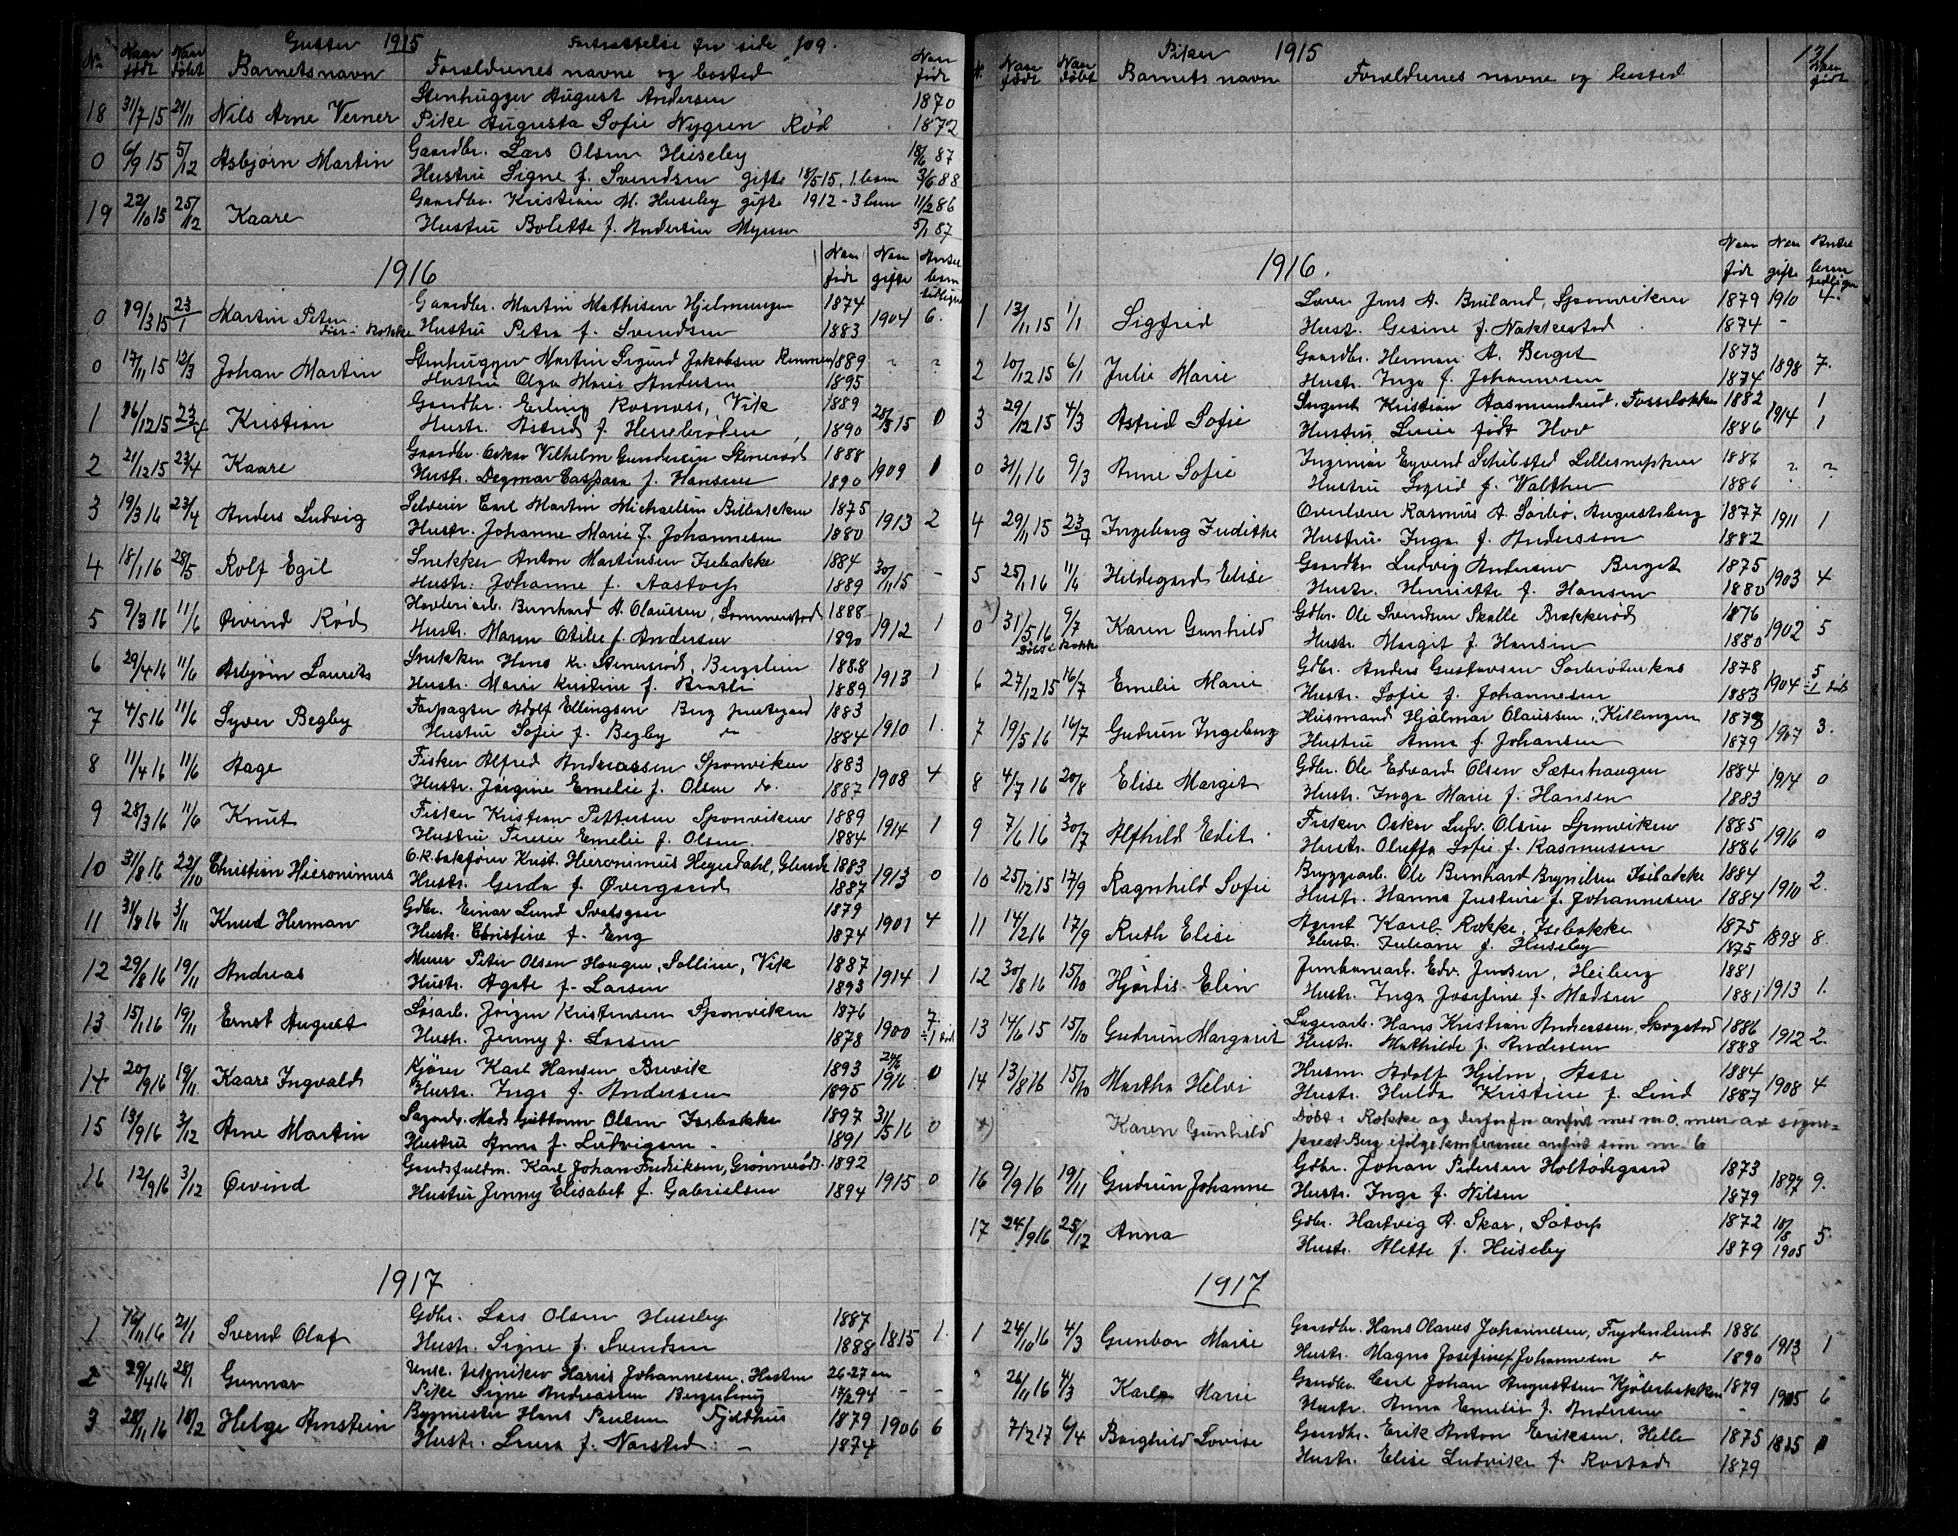 Gutter 1915 Fortsættelse fra side 109.
Nr. Naar født Naar døbt Barnets navn Forældrenes navne og bosted Naar født
18 31/7 15 21/11 Nils Arne Verner Stenhugger August Andersen 1870
Pike Augusta Sofie Nygren Rød 1872
0 6/9 15 5/12 Asbjørn Martin Gaardbr. Lars Olsen Huseby 18/6 87
Hustru Signe f. Svendsen gifte 18/5 15, 1. barn 3/6 88
19 22/10 15 25/12 Kaare Gaardbr. Kristian M. Huseby gifte 1912 - 3 barn 11/2 86
Hustru Bolette f. Andersen 5/1 87
1916 Naar født Naar gifte Antal barn tidligere
0 19/3 15 23/1 Martin Peter Gaardbr. Martin Mathisen 1874 1904 6.
Hustru Petra f. Svendsen 1883
0 17/11 15 12/3 Johan Martin Stenhugger Martin Sigurd Jakobsen 1889
Hustru Olga Marie Andersen 1895
1 16/12 15 23/4 Kristian Gaardbr. Erling Rosnæss, Vik 1889 0
Hustr. Astrid f. Herrebrøden 1890
2 21/12 15 23/4 Kaare Gaardbr. Oskar Vilhelm Gundersen Stenerød 1888 1909
Hustr. Dagmar Caspara f. Hansen 1890
3 19/3 16 23/4 Anders Ludvig Selveier Carl Martin Michaelsen 1875 1913 2
Hustr. Johanne Marie f. Johannesen 1880
4 18/1 16 28/5 Rolf Egil Snekker Anton Martinsen Isebakke 1884 30/11 15 -
Hustr. Johanne f. Aastorp 1889
5 9/3 16 11/6 Øivind Rød Bernhard A. Olaussen, Sommerstad 1888 1912 1
Hustr. Maren Otilie f. Andersen 1890
6 29/4 16 11/6 Asbjørn Laurits Snekker Hans Kr. Stenersrød, Bergslien 1888 1913 1
Hustr. Marie Kristine f. Braste 1889
7 4/5 16 11/6 Syver Begby Forpagter Adolf Ellingsen Berg prestegaard 1883 1910 1.
Hustru Sofie f. Begby 1884
8 11/4 16 11/6 Aage Fisker Alfred Andreassen Sponviken 1883 1908 4
Hustr. Jørgine Emelie f. Olsen do. 1887
9 28/3 16 11/6 Knut Fisker Kristian Pettersen Sponviken 1889 1914 1
Hustru Emelie f. Olsen 1884
10 31/8 16 22/10 Christian Hieronimus O.r. sakfører Krist. Hieronimus Heyerdahl, 1883 1913 0
Hustr. Gerda f. Øvergaard 1887
11 31/8 16 3/11 Knud Herman Gdbr. Einar Lund 1879 1901 4
Hustr. Christine f. Eng 1874
12 29/8 16 19/11 Andreas Murer Peter Olsen Haugen, Sollien, Vik 1887 1914 1
Hustr. Agate f. Larsen 1893
13 15/1 16 19/11 Ernst August Løsarb. Jørgen Kristensen Sponviken 1876 1900 7.
Hustr. Jenny f. Larsen 1878 ÷1 død
14 20/9 16 19/11 Kaare Ingvald Kjører Karl Hansen Brevik 1893 24/6 1916 0
Hustr. Inga f. Andersen 1895
15 13/9 16 3/12 Arne Martin Sagarb. Mads Guttorm Olsen Isebakke 1897 31/5 16 0
Hustru Anna f. Ludvigsen - 1891
16 12/9 16 3/12 Øivind Karl Johan Fredriksen, Grønnerød 1892 1915 0
Hustru Jenny Elisabet f. Gabrielsen 1894
1917
1 16/11 16 21/1 Svend Olaf Gdbr. Lars Olsen Huseby 1887 1815 1.
Hustr. Signe f. Svendsen 1888
2 29/4 16 28/1 Gunnar Harris Johannesen, 26-27
Pike Signe Andreassen - -
3 28/11 16 18/2 Helge Arnstein Bygmester Hans Paulsen Fjeldhus 1879 1906 6
Hustr. Laura f. Narstad - 1874
Piker 1915 121
Nr. Naar født Naar døbt Barnets navn Forældrenes navne og bosted Naar født
1916. Naar født Naar gifte Antal barn tidligere
1 13/11 15 1/1 Sigfrid Lærer Jens A. Braland, Sponviken 1879 1910 4.
Hustr. Gesine f. Nakkestad 1874 -
2 10/12 15 6/1 Julie Marie Gaardbr. Herman A. Berget 1873 1898 7.
Hustr. Inga f. Johannesen 1874
3 29/12 15 4/3 Astrid Sofie Sergent Kristian Aasmundrud, Fosseløkken 1882 1914 1
Hustru født Hov 1886 1
0 31/1 16 9/3 Anne Sofie Ingeniør Eyvind Schibsted 1886
Hustru Sigrid f. Walther 1886
4 29/1 15 23/4 Ingeborg Judithe Overlærer Rasmus A. Sørbø, Augustaborg 1877 1911 1
Hustru Inga f. Andersson 1882
5 25/1 16 11/6 Hildegard Elise Gaardbr Ludvig Andersen Berget 1875 1903 4
Hustr. Henriette f. Hansen 1880
x) 0 31/5 16 9/7 Karen Gunhild Gdbr. Ole Svendsen Skolle Brekkerød 1876 1902 5
døbt i Rokke Hustr. Margit f. Hansen 1880
6 27/12 15 16/7 Emelie Marie Gdbr. Anders Gustavsen 1878 1904 5
Hustr. Sofie f. Johannesen 1883 ÷1 død
7 19/5 16 16/7 Gudrun Ingeborg Husmand Hjalmar Olaussen, Killingen 1878 1907 3.
Hustru Anna f. Johansen 1879
8 4/7 16 20/8 Elise Margit Gdbr. Ole Edvard Olsen Sæterhaugen 1884 1914 0
Hustr. Inga Marie f. Hansen 1883
9 7/6 16 30/7 Alfhild Edit Fisker Oskar Ludv. Olsen Sponviken 1885 1916 0
Hustr. Oleffa Sofie f. Rasmussen 1886
10 25/12 15 17/9 Ragnhild Sofie Bryggearb. Ole Bernhard Brynilsen Isebakke 1884 1910 2.
Hustr. Hanna Justine f. Johannesen 1884
11 14/2 16 17/9 Ruth Elise Agent Karl Rokke, Isebakke 1875 1898 8.
Hustr. Juliane f. Huseby 1875
12 30/8 16 15/10 Hjørdis Elin Jernbanearb. Edv. Jensen, Heiberg 1881 1913 1.
Hustr. Inga Josefine f. Madsen 1881
13 14/6 15 15/10 Gudrun Margarit Lagerarb. Hans Kristian Andreassen, Skogstad 1886 1912 2.
Hustr. Mathilde f. Andersen 1888
14 13/8 16 15/10 Martha Helvi Husm. Adolf Hjelm, Aase 1884 1908 4
Hustr. Hulda Kristine f. Lind 1887
x) Karen Gunhild Døbt i Rokke og derfor før anført med nr. 0, men av sogne-
prest Berg ifølge konferense anført som nr. 6
16 9/9 16 19/11 Gudrun Johanne Gdbr. Johan Pedersen Holtødegaard 1873 1897 9.
Hustr. Inga f. Nilsen 1879
17 24/9 16 25/12 Anna Gdbr. Hartvig A. Skar, Søtorp 1872 18/8 1905 5.
Hustr. Alette f. Huseby 1879
1917
1 24/10 16 4/3 Gunbor Marie Gaardbr. Hans Olaves Johannesen, Frydenlund 1886 1913 1
Hustr. Magna Josefine f. Johannesen 1890
2 26/11 16 4/3 Karla Marie Gaardbr. Carl Johan Augustsen Kjølerbakken 1879 1905 6
Hustr. Anna Emelie f. Andersen -
3 7/2 17 6/4 Borghild Lovise Gaardbr. Erik Anton Eriksen, Helle 1875
Hustr. Elise Ludvike f. Rostad 1879